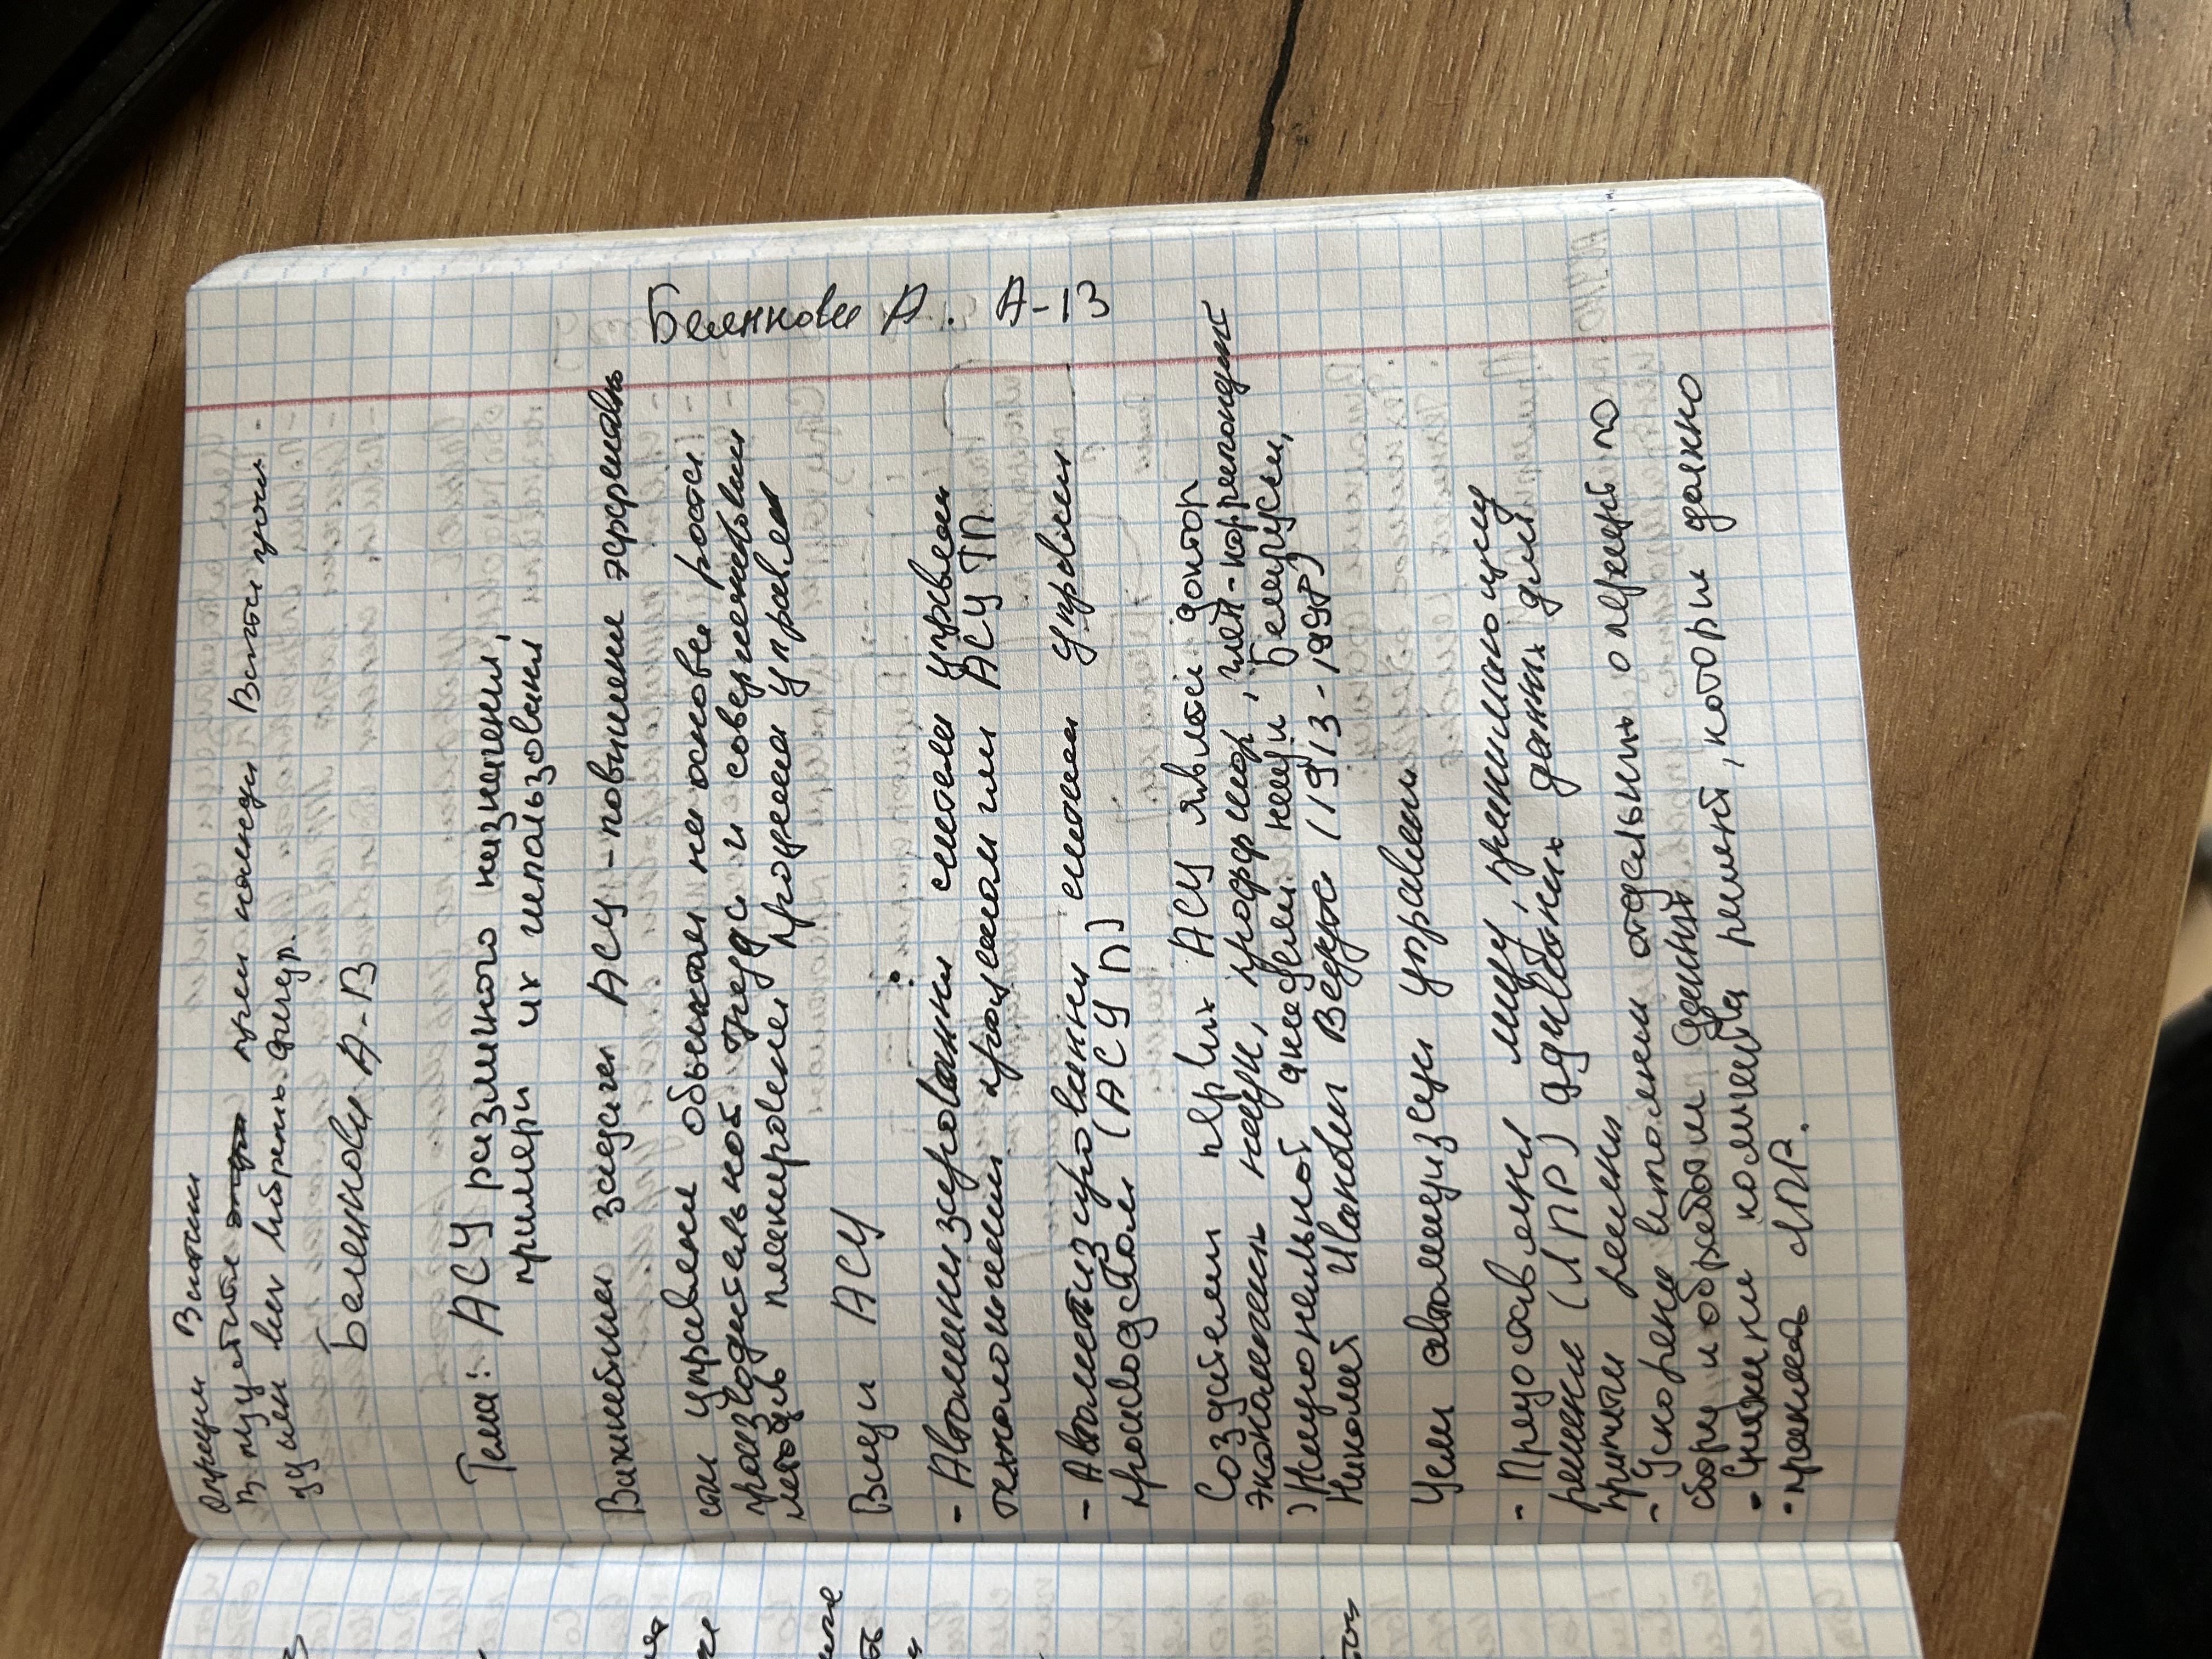 операции Вставки
В пустите путем команды Вставка
удален
Беликова А-В
Тема: АСУ различного назначения,
примери их использовани
Важнейшая задача АСУ-повишение эффективн
сти управлени обьектом на основе роста
производительност труда и совершенствовани
методов планировани процесса управлен
Виды АСУ
- Автоматизированна система управлен
технологическим процессом или АСУ ТП
- Автоматизированна система управлени
производством (АСУ П)
Создателем первих АСУ являтся доктор
экономических наук, професор, член-кореспондент
Национальной академии наук Беларуси,
Николай Иванович Ведута (1913-1998)
Цели автоматизации управлени
- Предоставлени лицу, принимающему
решение (ЛПР) адекватних данних для
приняти решени
- Ускорени виполнени отдельних операций по
сбору и обработки данних
- Снижение количества решений, котории должно
принимать ЛПР.
Беликова А. А-13